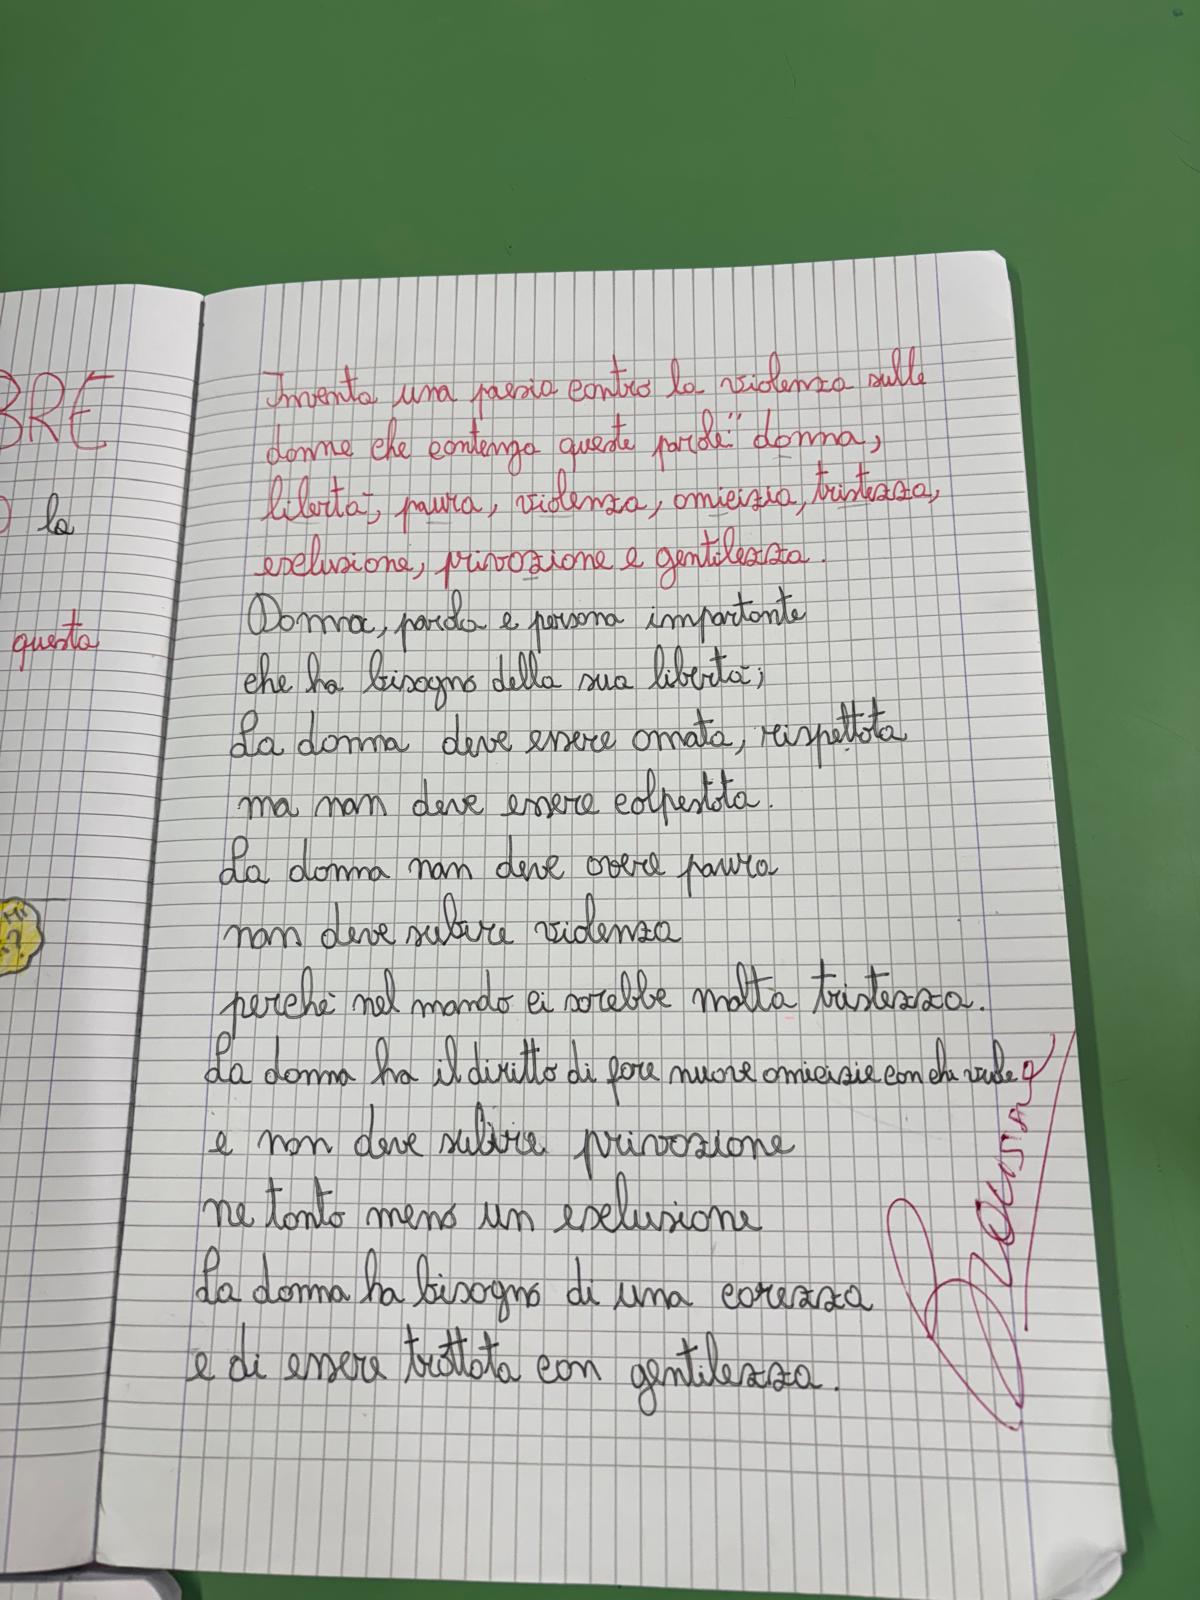 BRE
la
questa
Inventa una poesia contro la violenza sulle
donne che contenga queste parole:" donna,
libertà, paura, violenza, amicizia, tristezza,
esclusione, privazione e gentilezza.
Donna, parola e persona importante
che ha bisogno della sua libertà;
La donna deve essere amata, rispettata
ma non deve essere calpestata.
La donna non deve avere paura
non deve subire violenza
perché nel mondo ci sarebbe molta tristezza.
La donna ha il diritto di fare nuove amicizie con chi vuole
e non deve subire privazione
ne tanto meno un esclusione
La donna ha bisogno di una carezza
e di essere trattata con gentilezza.